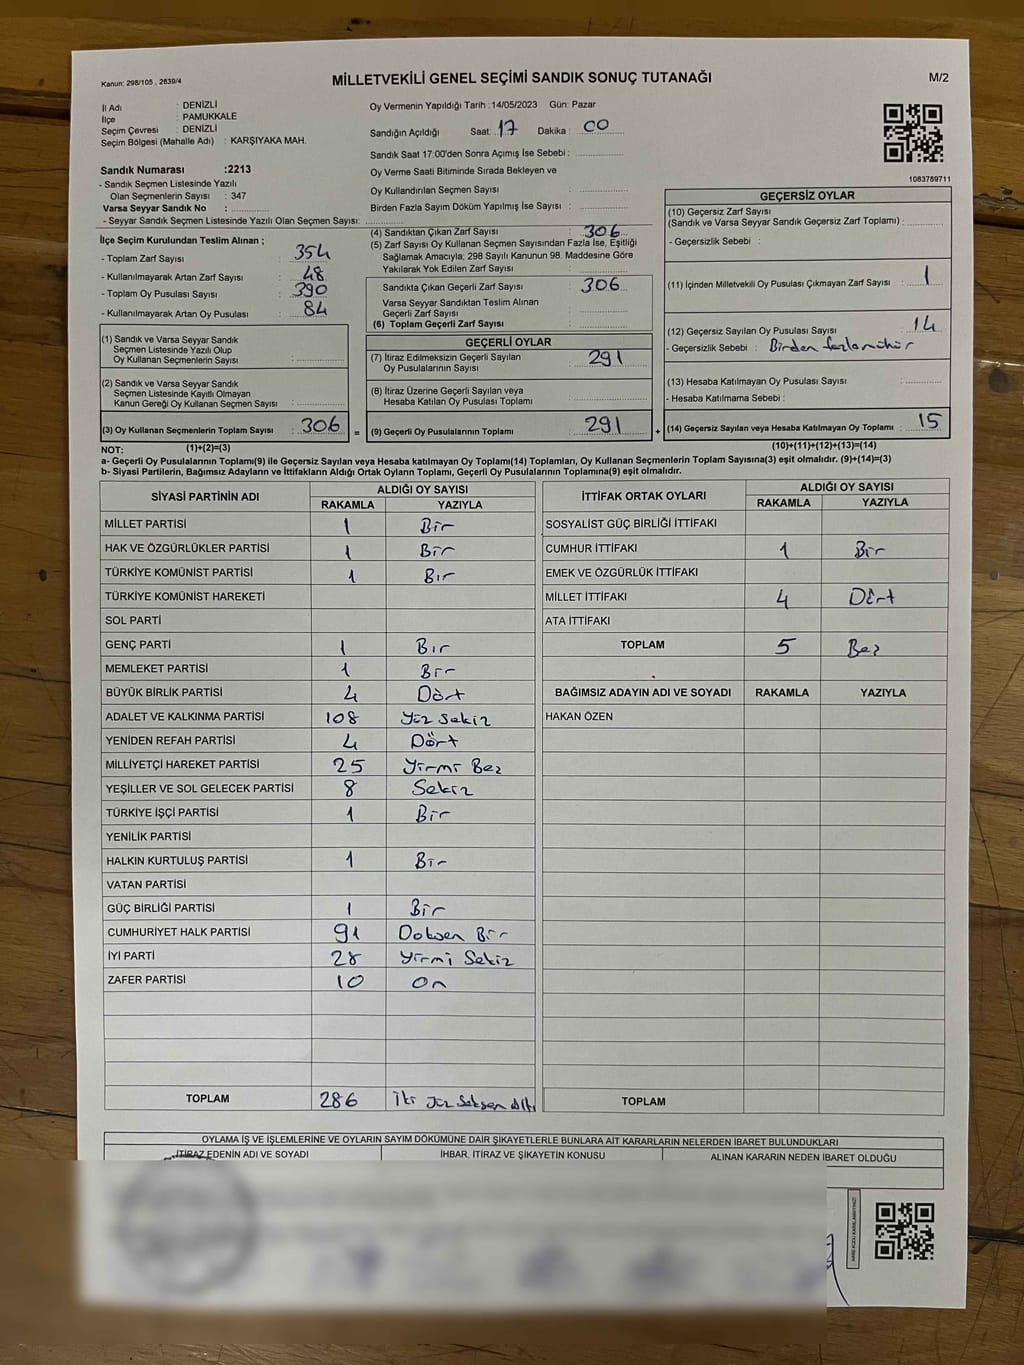 Kanun: 298/105 , 2839/4
MİLLETVEKİLİ GENEL SEÇİMİ SANDIK SONUÇ TUTANAĞI
M/2
İl Adı : DENİZLİ
İlçe : PAMUKKALE
Seçim Çevresi : DENİZLİ
Seçim Bölgesi (Mahalle Adı) : KARŞIYAKA MAH.
Sandık Numarası :2213
- Sandık Seçmen Listesinde Yazılı
Olan Seçmenlerin Sayısı : 347
Varsa Seyyar Sandık No :
- Seyyar Sandık Seçmen Listesinde Yazılı Olan Seçmen Sayısı:
Oy Vermenin Yapıldığı Tarih :14/05/2023 Gün: Pazar
Sandığın Açıldığı Saat: 17 Dakika : 00
Sandık Saat 17:00'den Sonra Açımış İse Sebebi :
Oy Verme Saati Bitiminde Sırada Bekleyen ve
Oy Kullandırılan Seçmen Sayısı :
Birden Fazla Sayım Döküm Yapılmış İse Sayısı :
1083789711
İlçe Seçim Kurulundan Teslim Alınan ;
- Toplam Zarf Sayısı : 354
- Kullanılmayarak Artan Zarf Sayısı : 48
- Toplam Oy Pusulası Sayısı : 390
- Kullanılmayarak Artan Oy Pusulası : 84
(1) Sandık ve Varsa Seyyar Sandık
Seçmen Listesinde Yazılı Olup
Oy Kullanan Seçmenlerin Sayısı :
(2) Sandık ve Varsa Seyyar Sandık
Seçmen Listesinde Kayıtlı Olmayan
Kanun Gereği Oy Kullanan Seçmen Sayısı :
(3) Oy Kullanan Seçmenlerin Toplam Sayısı : 306
(4) Sandıktan Çıkan Zarf Sayısı : 306
(5) Zarf Sayısı Oy Kullanan Seçmen Sayısından Fazla İse, Eşitliği
Sağlamak Amacıyla; 298 Sayılı Kanunun 98. Maddesine Göre
Yakılarak Yok Edilen Zarf Sayısı :
Sandıkta Çıkan Geçerli Zarf Sayısı : 306
Varsa Seyyar Sandıktan Teslim Alınan
Geçerli Zarf Sayısı :
(6) Toplam Geçerli Zarf Sayısı :
GEÇERLİ OYLAR
(7) İtiraz Edilmeksizin Geçerli Sayılan
Oy Pusulalarının Sayısı : 291
(8) İtiraz Üzerine Geçerli Sayılan veya
Hesaba Katılan Oy Pusulası Toplamı :
= (9) Geçerli Oy Pusulalarının Toplamı : 291
GEÇERSİZ OYLAR
(10) Geçersiz Zarf Sayısı
(Sandık ve Varsa Seyyar Sandık Geçersiz Zarf Toplamı) :
- Geçersizlik Sebebi :
(11) İçinden Milletvekili Oy Pusulası Çıkmayan Zarf Sayısı : 1
(12) Geçersiz Sayılan Oy Pusulası Sayısı : 14
- Geçersizlik Sebebi : Birden fazla mühür
(13) Hesaba Katılmayan Oy Pusulası Sayısı :
- Hesaba Katılmama Sebebi :
+ (14) Geçersiz Sayılan veya Hesaba Katılmayan Oy Toplamı : 15
NOT: (1)+(2)=(3)
(10)+(11)+(12)+(13)=(14)
a- Geçerli Oy Pusulalarının Toplamı(9) ile Geçersiz Sayılan veya Hesaba katılmayan Oy Toplamı(14) Toplamları, Oy Kullanan Seçmenlerin Toplam Sayısına(3) eşit olmalıdır. (9)+(14)=(3)
b- Siyasi Partilerin, Bağımsız Adayların ve İttifakların Aldığı Ortak Oyların Toplamı, Geçerli Oy Pusulalarının Toplamına(9) eşit olmalıdır.
SİYASİ PARTİNİN ADI ALDIĞI OY SAYISI
RAKAMLA YAZIYLA
MİLLET PARTİSİ 1 Bir
HAK VE ÖZGÜRLÜKLER PARTİSİ 1 Bir
TÜRKİYE KOMÜNİST PARTİSİ 1 Bir
TÜRKİYE KOMÜNİST HAREKETİ
SOL PARTİ
GENÇ PARTİ 1 Bir
MEMLEKET PARTİSİ 1 Bir
BÜYÜK BİRLİK PARTİSİ 4 Dört
ADALET VE KALKINMA PARTİSİ 108 Yüz Sekiz
YENİDEN REFAH PARTİSİ 4 Dört
MİLLİYETÇİ HAREKET PARTİSİ 25 Yirmi Beş
YEŞİLLER VE SOL GELECEK PARTİSİ 8 Sekiz
TÜRKİYE İŞÇİ PARTİSİ 1 Bir
YENİLİK PARTİSİ
HALKIN KURTULUŞ PARTİSİ 1 Bir
VATAN PARTİSİ
GÜÇ BİRLİĞİ PARTİSİ 1 Bir
CUMHURİYET HALK PARTİSİ 91 Doksan Bir
İYİ PARTİ 28 Yirmi Sekiz
ZAFER PARTİSİ 10 On
TOPLAM 286 İki Yüz Seksen Altı
İTTİFAK ORTAK OYLARI ALDIĞI OY SAYISI
RAKAMLA YAZIYLA
SOSYALİST GÜÇ BİRLİĞİ İTTİFAKI
CUMHUR İTTİFAKI 1 Bir
EMEK VE ÖZGÜRLÜK İTTİFAKI
MİLLET İTTİFAKI 4 Dört
ATA İTTİFAKI
TOPLAM 5 Beş
BAĞIMSIZ ADAYIN ADI VE SOYADI RAKAMLA YAZIYLA
HAKAN ÖZEN
TOPLAM
OYLAMA İŞ VE İŞLEMLERİNE VE OYLARIN SAYIM DÖKÜMÜNE DAİR ŞİKAYETLERLE BUNLARA AİT KARARLARIN NELERDEN İBARET BULUNDUKLARI
İTİRAZ EDENİN ADI VE SOYADI İHBAR, İTİRAZ VE ŞİKAYETİN KONUSU ALINAN KARARIN NEDEN İBARET OLDUĞU